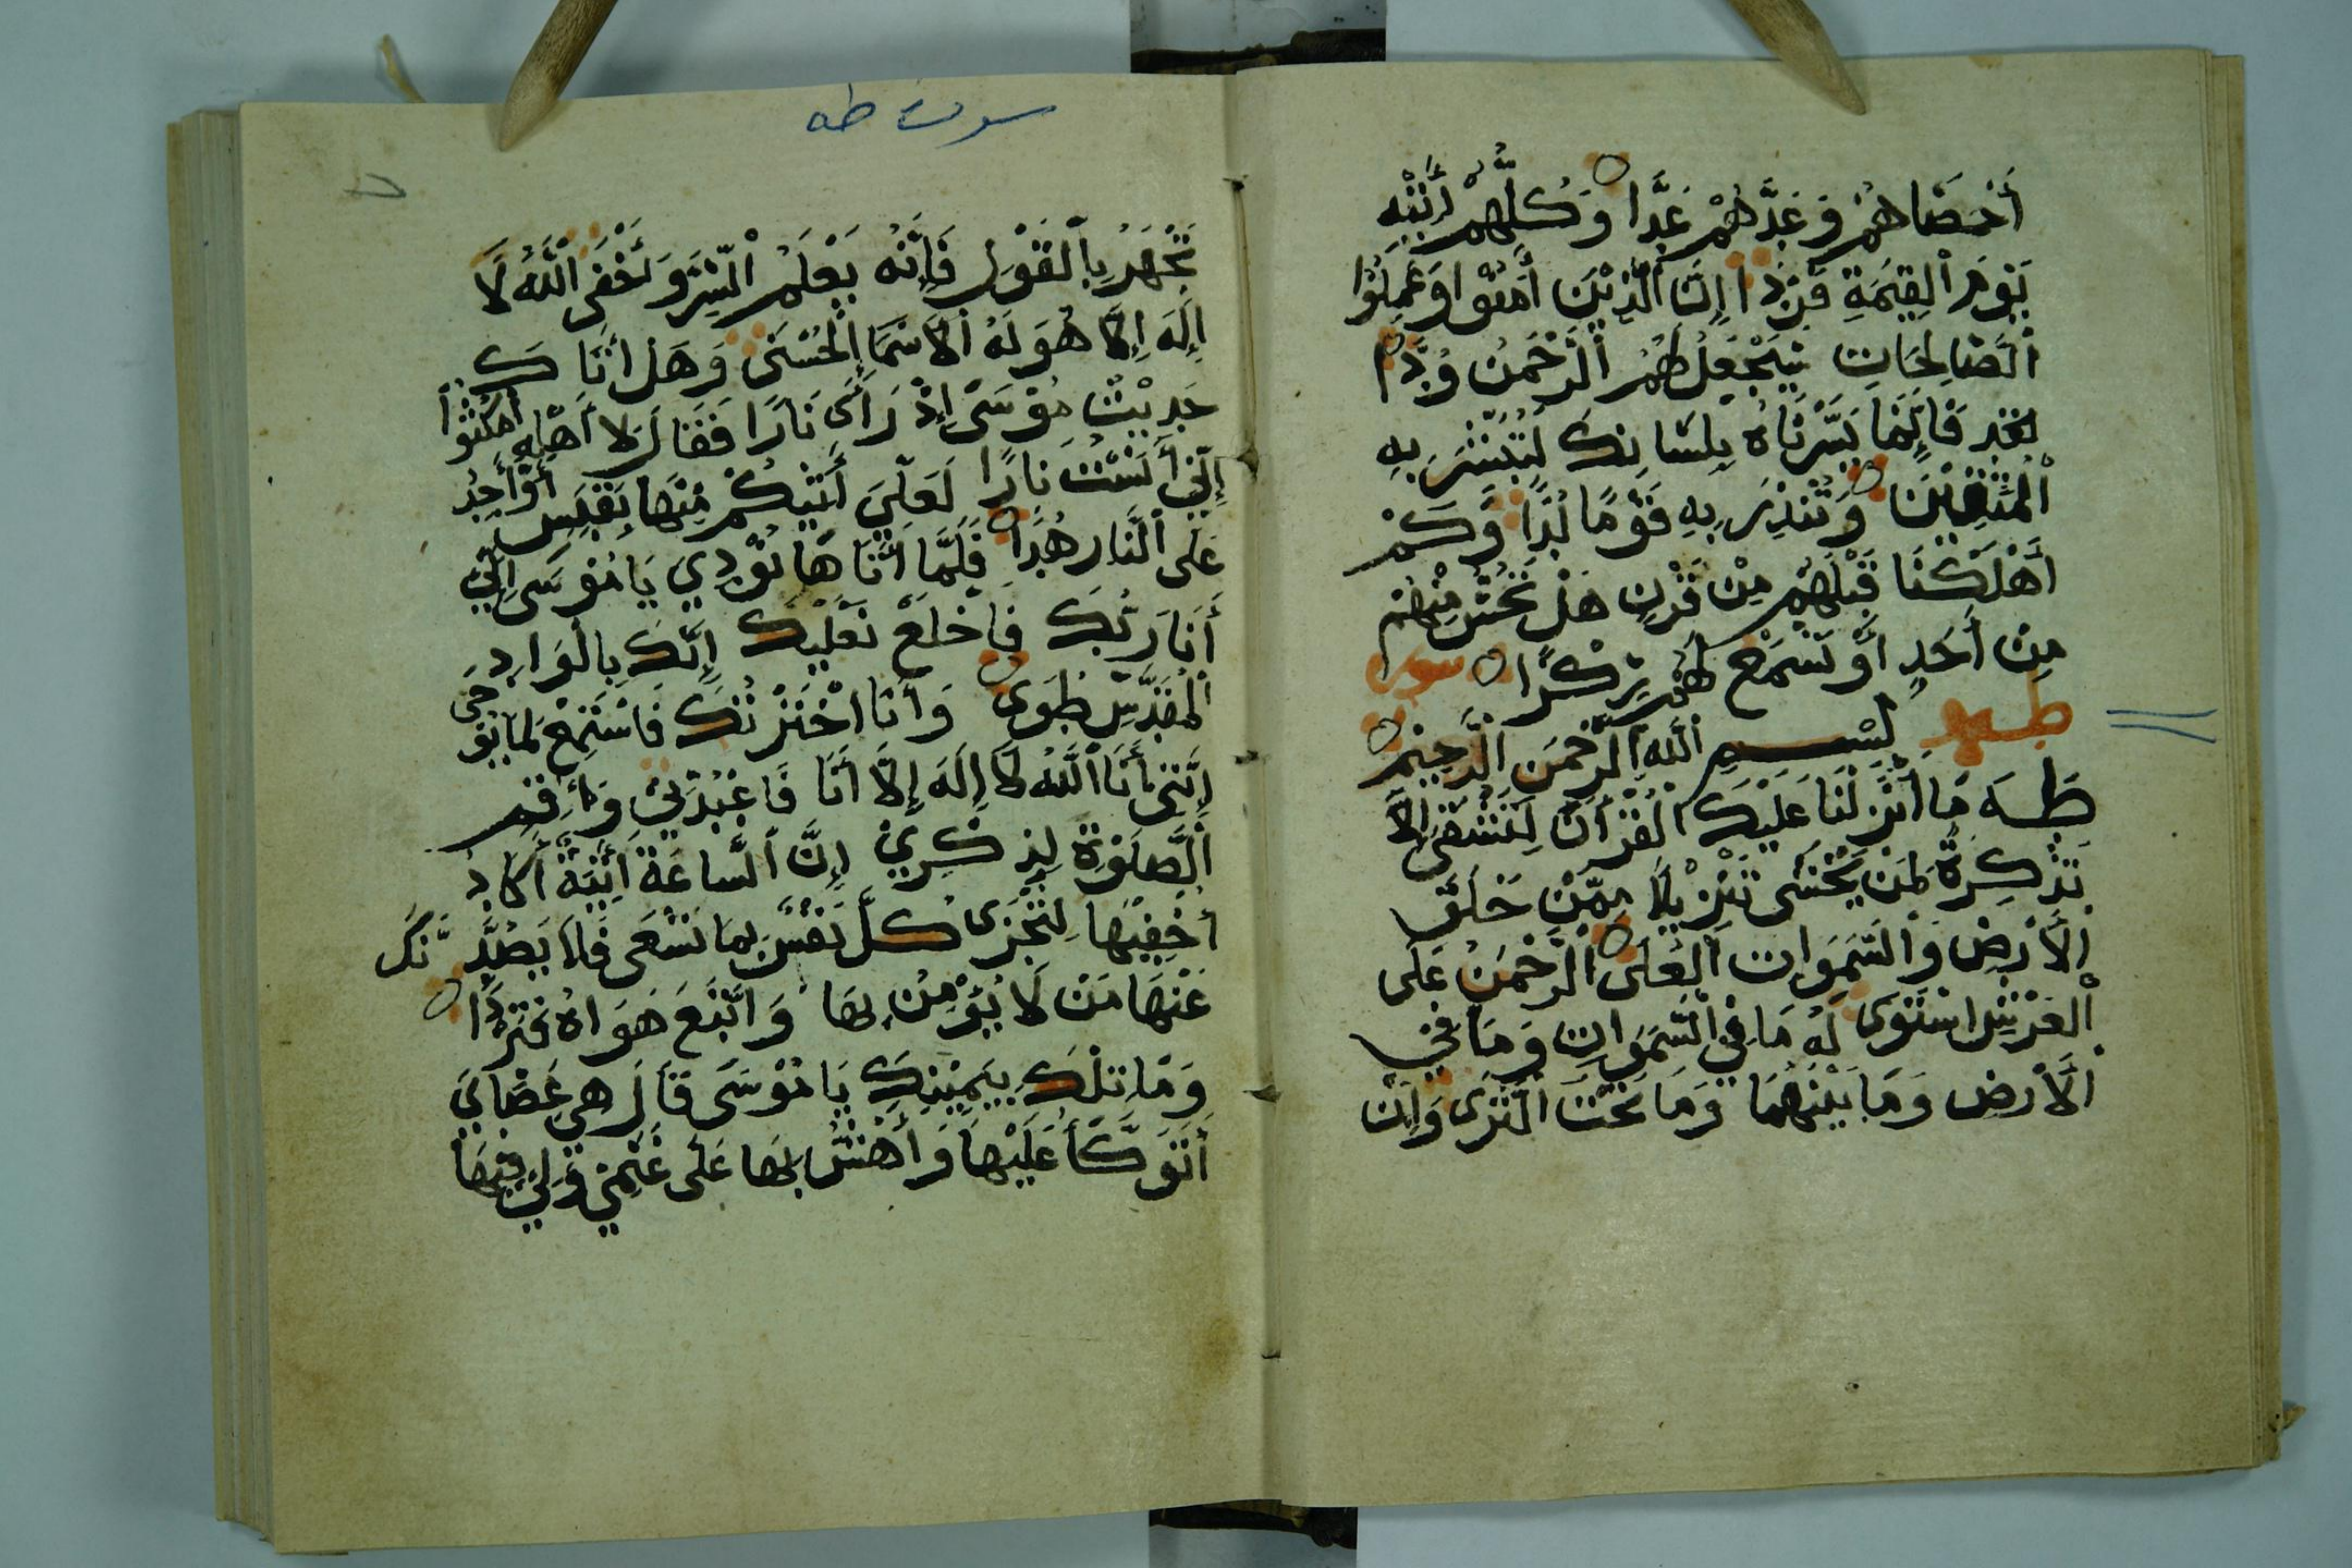 أَحْصَاهُمْ وَعَدَّهُمْ عَدًّا وَكُلُّهُمْ أَتِيهِ
يَوْمَ الْقِيَمَةِ فَرْدًا إِنَّ الَّذِيْنَ أَمَنُوْا وَعَمِلُوْا
الصَّالِحَاتِ سَيَجْعَلُ لَهُمُ الرَّحْمَنُ وُدًّا
فَإِنَّمَا يَسَّرْنَاهُ بِلِسَانِكَ لِتُبَشِّرَ بِهِ
الْمُتَّقِيْنَ وَتُنْذِرَ بِهِ قَوْمًا لُدًّا وَكَمْ
أَهْلَكْنَا قَبْلَهُمْ مِنْ قَرْنٍ هَلْ تُحِسُّ مِنْهُمْ
مِنْ أَحَدٍ أَوْ تَسْمَعُ لَهُمْ رِكْزًا سورة
طه بِسْمِ اللَّهِ الرَّحْمَنِ الرَّحِيْمِ
طَهَ مَا أَنْزَلْنَا عَلَيْكَ الْقُرْأَنَ لِتَشْقَى إِلَّا
تَذْكِرَةً لِمَنْ يَخْشَى تَنْزِيْلًا مِمَّنْ خَلَقَ
الْأَرْضَ وَالسَّمَوَاتِ الْعُلَى الرَّحْمَنُ عَلَى
الْعَرْشِ اسْتَوَى لَهُ مَا فِي السَّمَوَاتِ وَمَا فِي
الْأَرْضِ وَمَا بَيْنَهُمَا وَمَا تَحْتَ الثَّرَى وَإِنْ
سورة طه
تَجْهَرْ بِالْقَوْلِ فَإِنَّهُ يَعْلَمُ السِّرَّ وَأَخْفَى اللَّهُ لَا
إِلَهَ إِلَّا هُوَ لَهُ الْأَسْمَا الْحُسْنَى وَهَلْ أَتَاكَ
حَدِيْثُ مُوْسَى إِذْ رَأَى نَارًا فَقَالَ لِأَهْلِهِ امْكُثُوْا
إِنِّي أَنَسْتُ نَارًا لَعَلِّي أَتِيْكُمْ مِنْهَا بِقَبَسٍ أَوْ أَجِدُ
عَلَى النَّارِ هُدًا فَلَمَّا أَتَاهَا نُوْدِيَ يَا مُوْسَى إِنِّي
أَنَا رَبُّكَ فَاخْلَعْ نَعْلَيْكَ إِنَّكَ بِالْوَادِ
الْمُقَدَّسِ طُوَى وَأَنَا اخْتَرْتُكَ فَاسْتَمِعْ لِمَا يُوْحَى
إِنَّنِي أَنَا اللَّهُ لَا إِلَهَ إِلَّا أَنَا فَاعْبُدْنِي وَأَقِمِ
الصَّلَوةَ لِذِكْرِي إِنَّ السَّاعَةَ أَتِيَةٌ أَكَادُ
أُخْفِيْهَا لِتُجْزَى كُلُّ نَفْسٍ بِمَا تَسْعَى فَلَا يَصُدَّنَّكَ
عَنْهَا مَنْ لَا يُؤْمِنُ بِهَا وَاتَّبَعَ هَوَاهُ فَتَرْدَا
وَمَا تِلْكَ بِيَمِيْنِكَ يَا مُوْسَى قَالَ هِيَ عَصَايَ
أَتَوَكَّأُ عَلَيْهَا وَأَهُشُّ بِهَا عَلَى غَنَمِي وَلِيَ فِيْهَا